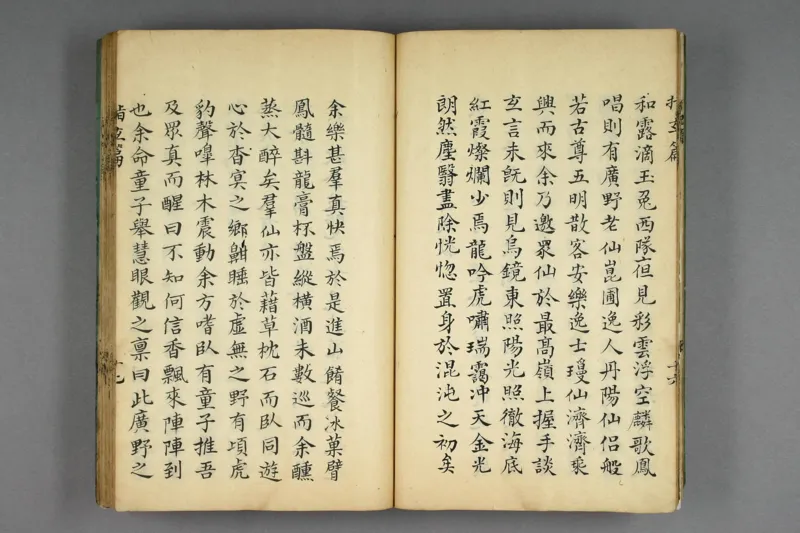 指玄篇
和露滴玉兔西隊但見彩雲浮空麟歌鳳
唱則有廣野老仙崑圃逸人丹陽仙侶般
若古尊五明散客安樂逸士瓊仙濟濟乘
興而來余乃邀眾仙於最高嶺上握手談
玄言未既則見烏鏡東照陽光照徹海底
紅霞燦爛少焉龍吟虎嘯瑞靄冲天金光
朗然塵翳盡除恍惚置身於混沌之初矣
十六
余樂甚羣真快焉於是進山餚餐冰菓臂
鳳髓斟龍膏杯盤縱橫酒未數巡而余醺
蒸大醉矣羣仙亦皆藉草枕石而臥同遊
心於杳冥之鄉鼾睡於虛無之野有頃虎
豹聲嘷林木震動余方嗜臥有童子推吾
及眾真而醒曰不知何信香飄來陣陣到
也余命童子舉慧眼觀之稟曰此廣野之
指玄篇
十七